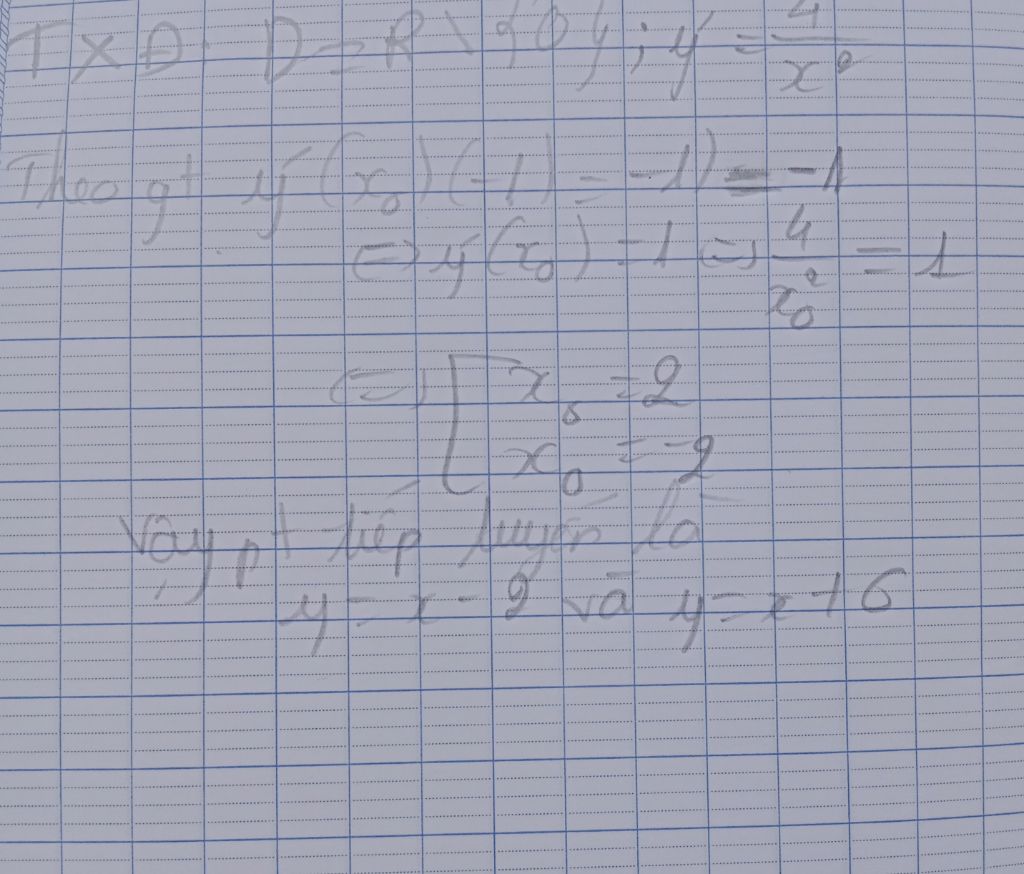 TXĐ: D=R\{0}; y' = 4/x²
Theo gt y'(x₀)(-1) = -1) = -1
(=) y'(x₀) = 1 (=) 4/x₀² = 1
(=) [ x₀ = 2
x₀ = -2
Vậy pt tiếp tuyến là
y = x - 2 và y = x + 6